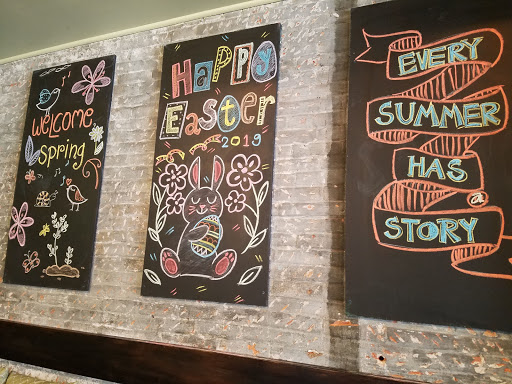 Welcome
Spring
Happy
Easter
2019
EVERY
SUMMER
HAS
a
STORY